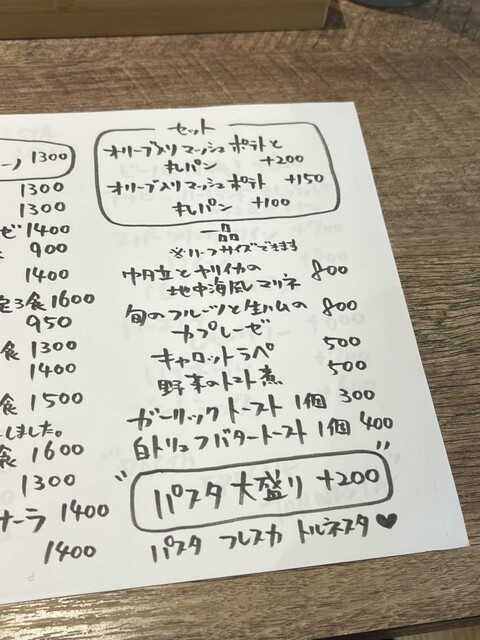 セット
オリーブ入りマッシュポテトと
丸パン +200
オリーブ入りマッシュポテト +150
丸パン +100
一品
※ハーフサイズできます
帆立とヤリイカの
地中海風マリネ 800
旬のフルーツと生ハムの
カプレーゼ 800
キャロットラペ 500
野菜のトマト煮 500
ガーリックトースト 1個 300
白トリュフバタートースト 1個 400
"パスタ大盛り +200"
パスタ フレスカ トルネスタ♥
ーノ 1300
1300
1300
ゼ 1400
900
1400
定3食 1600
950
食 1300
1400
食 1500
しました。
食 1600
1300
ナーラ 1400
1400